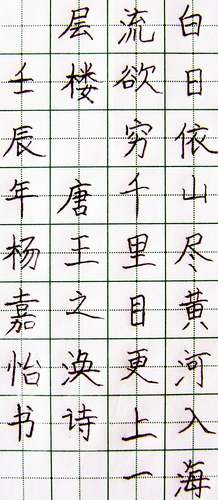 白日依山尽黄河入海
流欲穷千里目更上一
层楼 唐王之涣诗
壬辰年杨嘉怡书